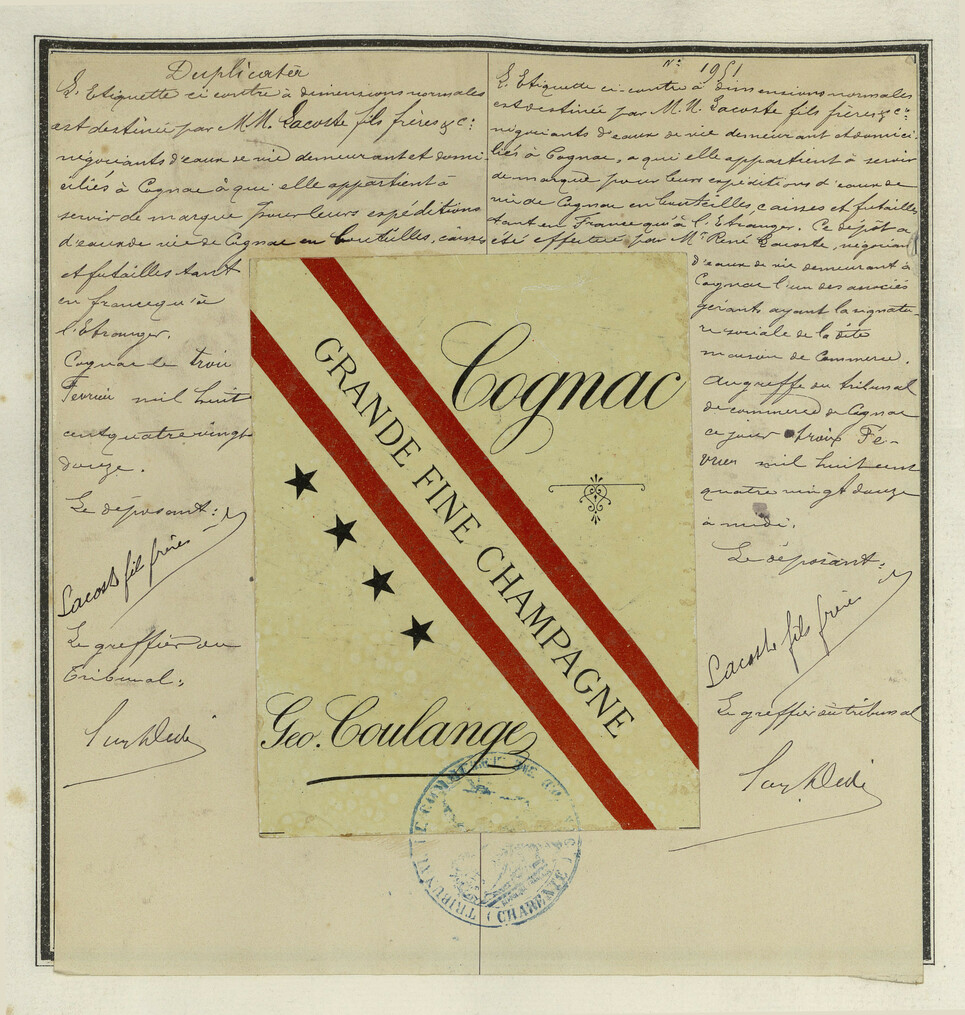 Duplicata
L'Etiquette ci contre à dimensions normales
est destinée par M.M. Lacoste fils frères & Cie
négociants d'eaux de vie demeurant et domi-
ciliés à Cognac à qui elle appartient à
servir de marque pour leurs expéditions
d'eaux de vie de Cognac en bouteilles, caisses
et futailles tant
en france qu'à
l'Etranger.
Cognac le trois
Fevrier mil huit
cent quatre vingt
douze.
Le déposant:
Lacoste fils frères
Le greffier du
Tribunal:
No 1951
L'Etiquette ci contre à dimensions normales
est destinée par M.M. Lacoste fils frères & Cie
négociants d'eaux de vie demeurant et domici-
liés à Cognac, a qui elle appartient à servir
de marque pour leurs expéditions d'eaux de
vie de Cognac en bouteilles, caisses et futailles
tant en France qu'à l'Etranger. Ce dépôt a
été effectué par Mr René Lacoste, négociant
d'eaux de vie demeurant à
Cognac l'un des associés
gérants ayant la signatu-
re sociale de la dite
maison de Commerce.
Au greffe du tribunal
de commerce de Cognac
ce jour trois Fe-
vrier mil huit cent
quatre vingt douze
à midi.
Le déposant:
Lacoste fils frères
Le greffier du tribunal
Cognac
GRANDE FINE CHAMPAGNE
Geo. Coulange
TRIBUNAL DE COMMERCE DE COGNAC
(CHARENTE)